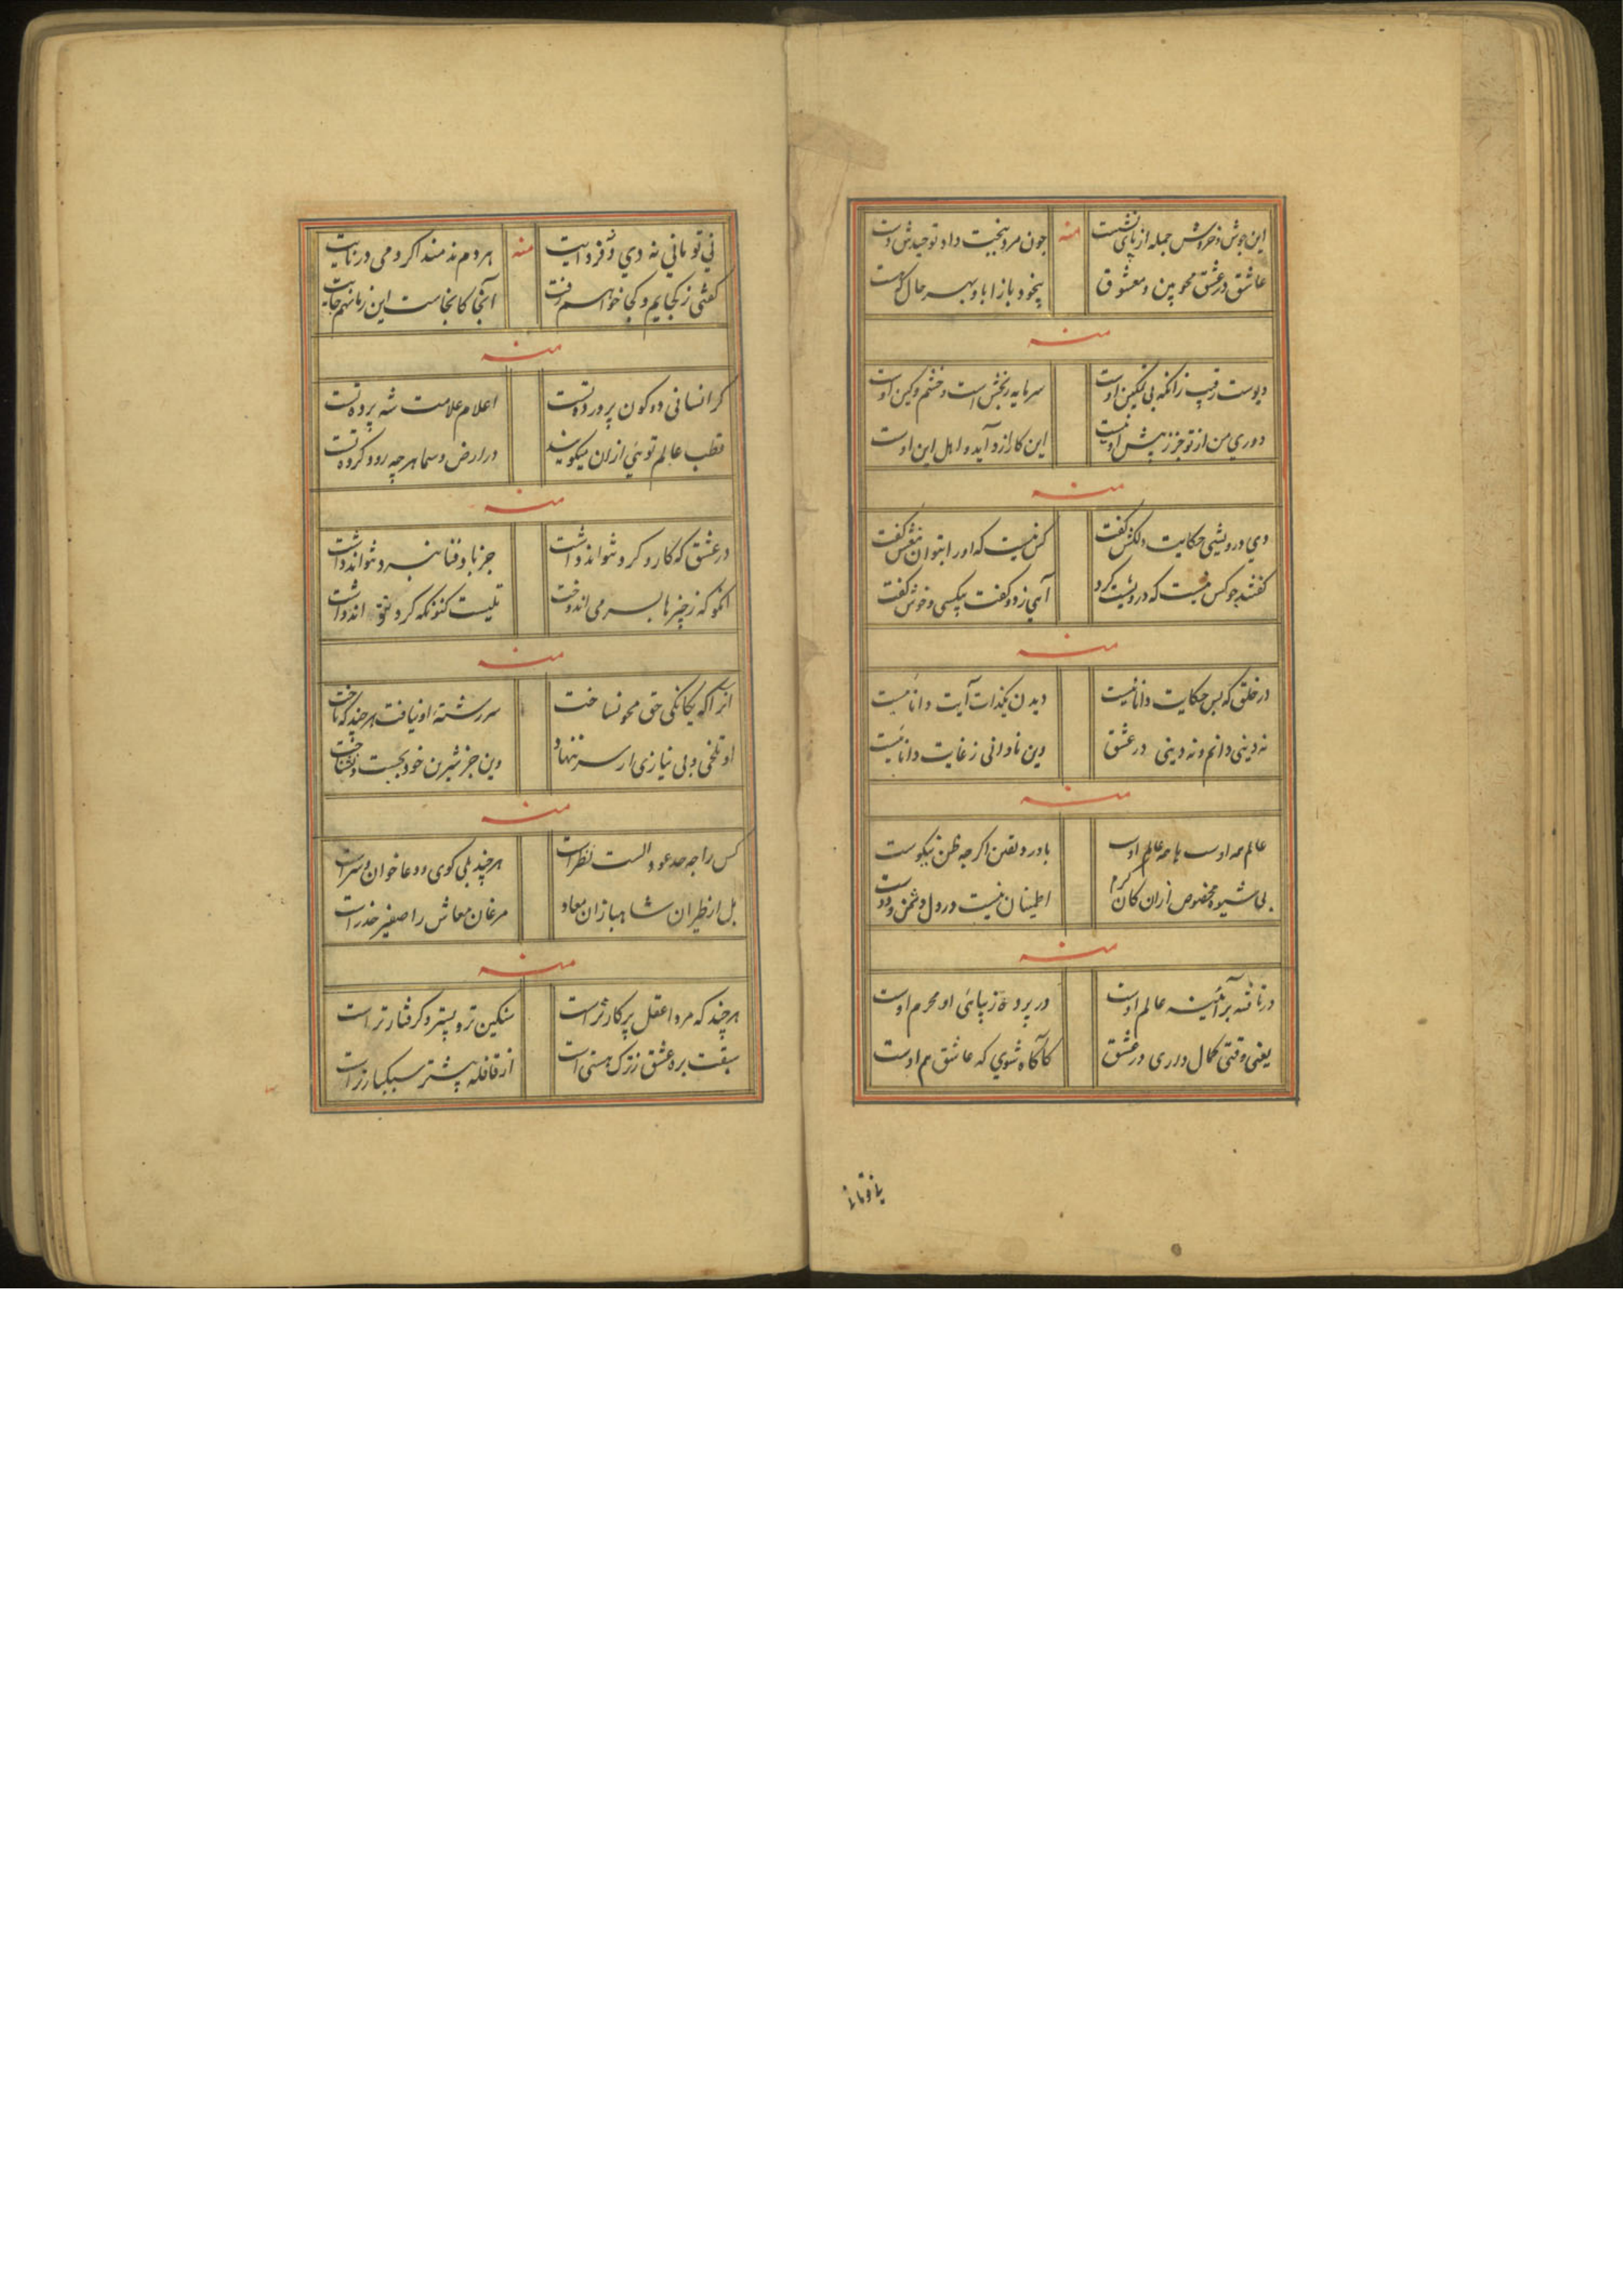 این جوش و خروش جمله از پای نشست منه چون مرد بخبیت داد توحیدش دست
عاشق در عشق محو بین و معشوق بیخود باز ابا و بهر حال که هست
منه
دیوست رقیب زانکه بی تمکین اوست سرمایه رنجش است و خشم و کین اوست
دوری من از تو جز ز پیش او نیست این کار ازو آید و اهل این اوست
منه
دی درویشی حکایت دلکش گفت کس نیست که اورا بتوان نغزش گفت
گفتند چو کس نیست که درویشت کرد آهی زد و گفت بیکسی و خوش گفت
منه
در خلق که بس حکایت دانائیست دیدن یکذات آیت دانائیست
نه دینی دانم و نه دینی در عشق وین نادانی ز غایت دانائیست
منه
عالم همه اوست با همه عالم اوست باور و یقین اگر چه ظن نیکوست
بی شیوه مخصوص ازان کان کرم اطمینان نیست در دل دشمن و دوست
منه
در تافته بر آئینه عالم اوست در پرده زیبائی او محرم اوست
یعنی وقتی کمال داری در عشق کاگاه شوی که عاشق هم اوست
نی تو مانی نه دی و نه فردایت منه هر دم ندمند اگر دمی در نایت
گفتی ز کجایم و کجا خواهم رفت آنجا کانجاست این زمانهم جایت
منه
گر انسانی دو کون پرورده تست اعلام علامت شه پرده تست
قطب عالم توئی ازان میگویند در ارض و سما هر چه رود کرده تست
منه
در عشق که کار و کرد نتواند داشت جز باد فنا نبرد نتواند داشت
انکو که ز چیزها بسر می اندوخت نیست کنونکه گرد نتواند داشت
منه
انرا که یگانگی حق محو نساخت سر رشته او نیافت هر چند که تاخت
او تلخی و بی نیازی از سر ننهاد وین جز شیرین خود بجست و نشناخت
منه
کس را چه حد عود الست نظر است هر چند بلی گوی و دعا خوان و سراست
بل از طیران شاهبازان معاد مرغان معاش را صفیر حذر است
منه
هر چند که مرد اعقل پرکارتر است سنگین تر و بیشتر و گرفتارتر است
سبقت بره عشق ز ترک هستی است از قافله پیشتر سبکبارتر است